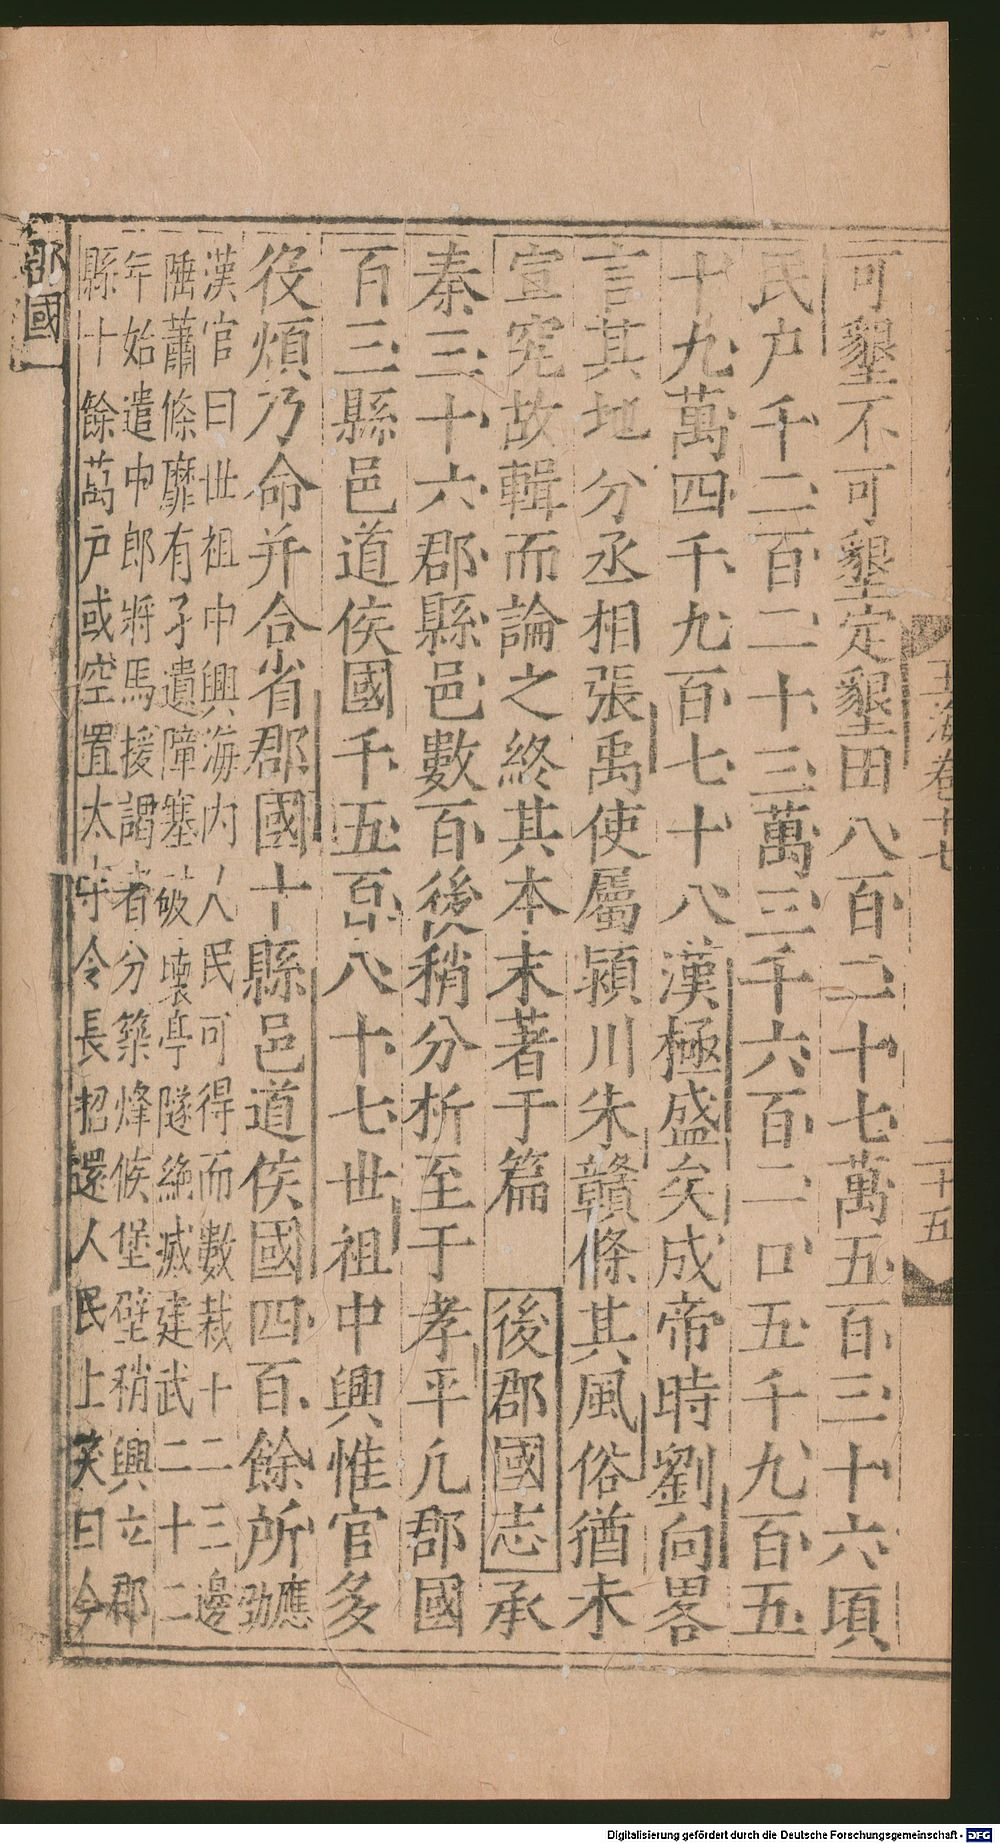 可墾不可墾定墾田八百二十七萬五百三十六頃
民户千二百二十三萬三千六百二口五千九百五
十九萬四千九百七十八漢極盛矣成帝時劉向畧
言其地分丞相張禹使屬潁川朱贛條其風俗猶未
宣究故輯而論之終其本末著于篇 後郡國志 承
秦三十六郡縣邑數百後稍分析至于孝平凡郡國
百三縣邑道侯國千五百八十七世祖中興惟官多
役煩乃命并合省郡國十縣邑道侯國四百餘所應劭
漢官曰世祖中興海内人民可得而數裁十二三邊
陲蕭條靡有孑遺障塞破壞亭隧絶滅建武二十二
年始遣中郎將馬援謁者分築烽候堡壁稍興立郡
縣十餘萬户或空置太守令長招還人民上笑曰今
郡國一
玉海卷十七
二十五
Digitalisierung gefördert durch die Deutsche Forschungsgemeinschaft - DFG